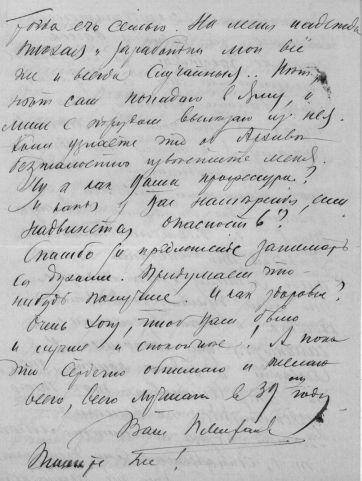 Тогда его семью. На меня надежда
плохая и заработки мои всё
же и всегда случайные.
сам попадаю в яму, и
с трудом вылезаю из нея.
узнаете что об Архиве
безжалостно известите меня.
Ну а как Ваша профессура?
и какое у Вас настроение, если
надвинется опасность?
Спасибо за предложение заниматься
духами. Придумаем что-
нибудь получше. И как здоровье?
Очень хочу, чтоб Вам было
и лучше и спокойнее! А пока
что сердечно обнимаю и желаю
всего, всего лучшего в 39ом году
Ваш
Пишите же!